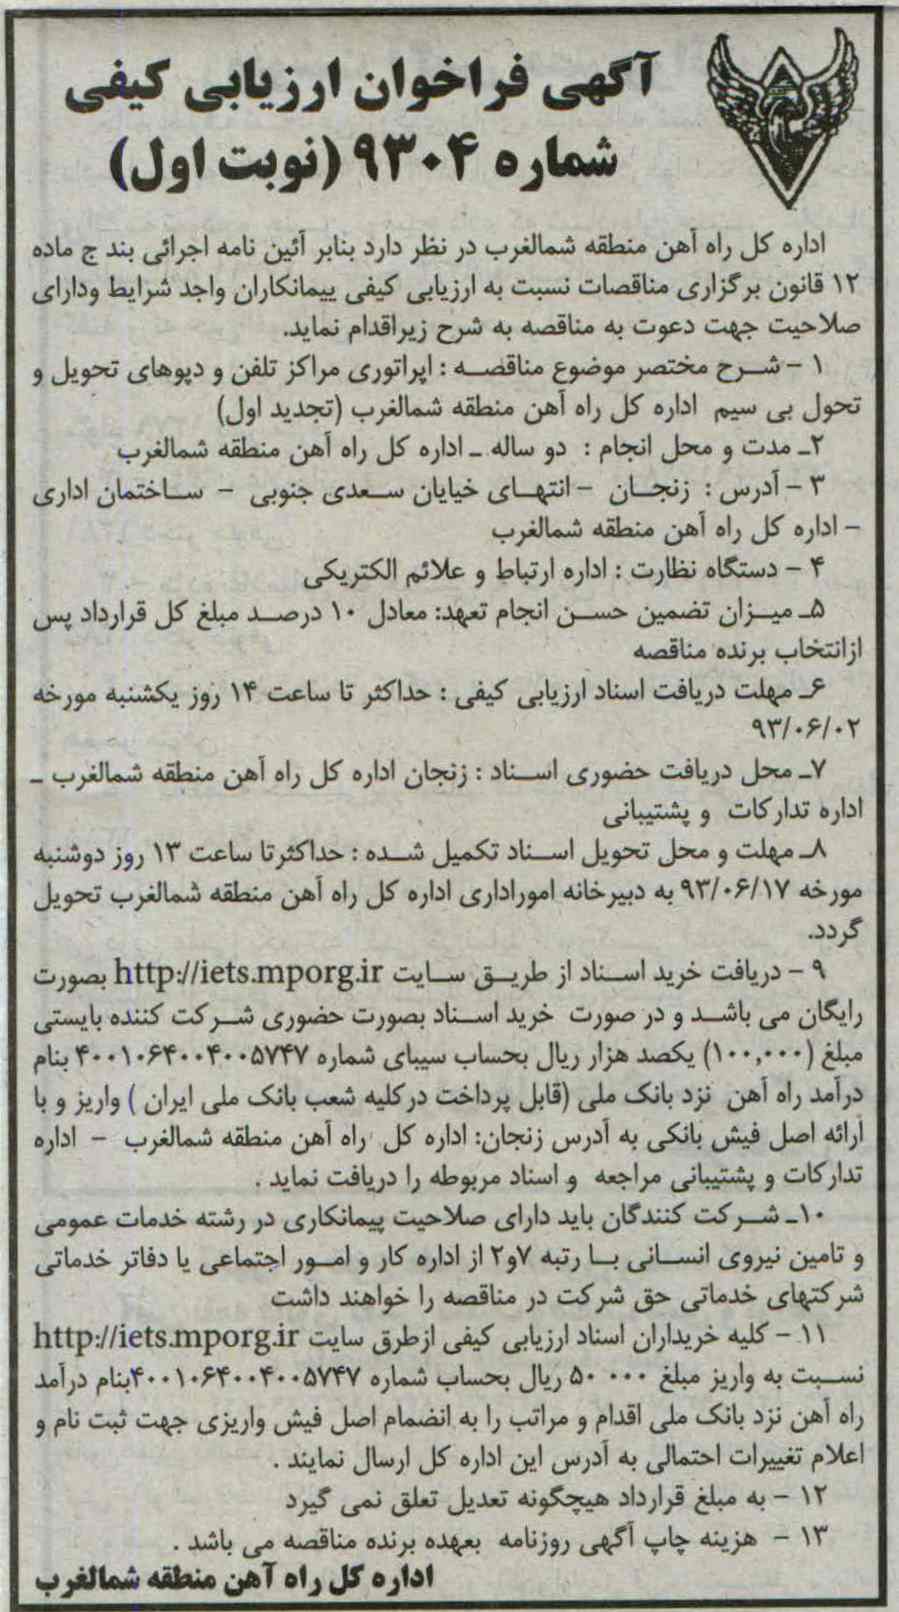 آگهی فراخوان ارزیابی کیفی
شماره ۹۳۰۴ (نوبت اول)
اداره کل راه آهن منطقه شمالغرب در نظر دارد بنابر آئین نامه اجرائی بند ج ماده
۱۲ قانون برگزاری مناقصات نسبت به ارزیابی کیفی پیمانکاران واجد شرایط ودارای
صلاحیت جهت دعوت به مناقصه به شرح زیراقدام نماید.
۱ – شرح مختصر موضوع مناقصه : اپراتوری مراکز تلفن و دپوهای تحویل و
تحول بی سیم اداره کل راه آهن منطقه شمالغرب (تجدید اول)
۲ـ مدت و محل انجام : دو ساله ـ اداره کل راه آهن منطقه شمالغرب
۳ – آدرس : زنجان – انتهای خیابان سعدی جنوبی – ساختمان اداری
– اداره کل راه آهن منطقه شمالغرب
۴ – دستگاه نظارت : اداره ارتباط و علائم الکتریکی
۵ـ میزان تضمین حسن انجام تعهد: معادل ۱۰ درصد مبلغ کل قرارداد پس
ازانتخاب برنده مناقصه
۶ـ مهلت دریافت اسناد ارزیابی کیفی : حداکثر تا ساعت ۱۴ روز یکشنبه مورخه
۹۳/۰۶/۰۲
۷ـ محل دریافت حضوری اسناد : زنجان اداره کل راه آهن منطقه شمالغرب ـ
اداره تدارکات و پشتیبانی
۸ـ مهلت و محل تحویل اسناد تکمیل شده : حداکثرتا ساعت ۱۳ روز دوشنبه
مورخه ۹۳/۰۶/۱۷ به دبیرخانه اموراداری اداره کل راه آهن منطقه شمالغرب تحویل
گردد.
۹ – دریافت خرید اسناد از طریق سایت http://iets.mporg.ir بصورت
رایگان می باشد و در صورت خرید اسناد بصورت حضوری شرکت کننده بایستی
مبلغ (۱۰۰,۰۰۰) یکصد هزار ریال بحساب سیبای شماره ۴۰۰۱۰۶۴۰۰۴۰۰۵۷۴۷ بنام
درآمد راه آهن نزد بانک ملی (قابل پرداخت درکلیه شعب بانک ملی ایران ) واریز و با
ارائه اصل فیش بانکی به آدرس زنجان: اداره کل راه آهن منطقه شمالغرب – اداره
تدارکات و پشتیبانی مراجعه و اسناد مربوطه را دریافت نماید .
۱۰ـ شرکت کنندگان باید دارای صلاحیت پیمانکاری در رشته خدمات عمومی
و تامین نیروی انسانی با رتبه ۷و۲ از اداره کار و امور اجتماعی یا دفاتر خدماتی
شرکتهای خدماتی حق شرکت در مناقصه را خواهند داشت
۱۱ – کلیه خریداران اسناد ارزیابی کیفی ازطرق سایت http://iets.mporg.ir
نسبت به واریز مبلغ ۵۰ ۰۰۰ ریال بحساب شماره ۴۰۰۱۰۶۴۰۰۴۰۰۵۷۴۷بنام درآمد
راه آهن نزد بانک ملی اقدام و مراتب را به انضمام اصل فیش واریزی جهت ثبت نام و
اعلام تغییرات احتمالی به آدرس این اداره کل ارسال نمایند .
۱۲ – به مبلغ قرارداد هیچگونه تعدیل تعلق نمی گیرد
۱۳ – هزینه چاپ آگهی روزنامه بعهده برنده مناقصه می باشد .
اداره کل راه آهن منطقه شمالغرب